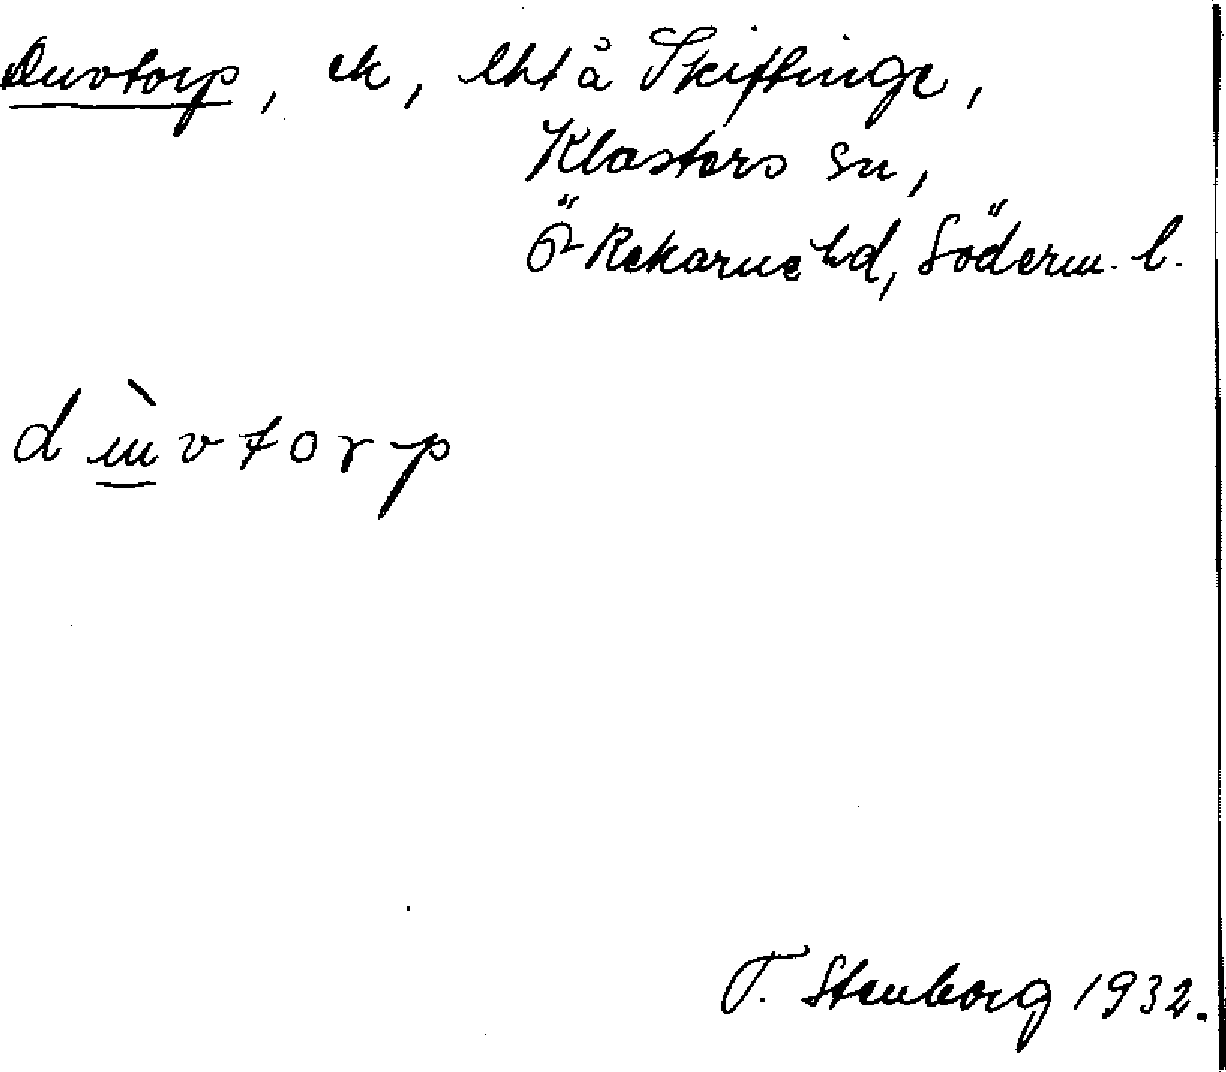 Duvtorp, ek, lht å Skiftinge,
Klosters sn,
Ö Rekarne hd, Söderm. l.
dùvtorp
T. Stenborg 1932.